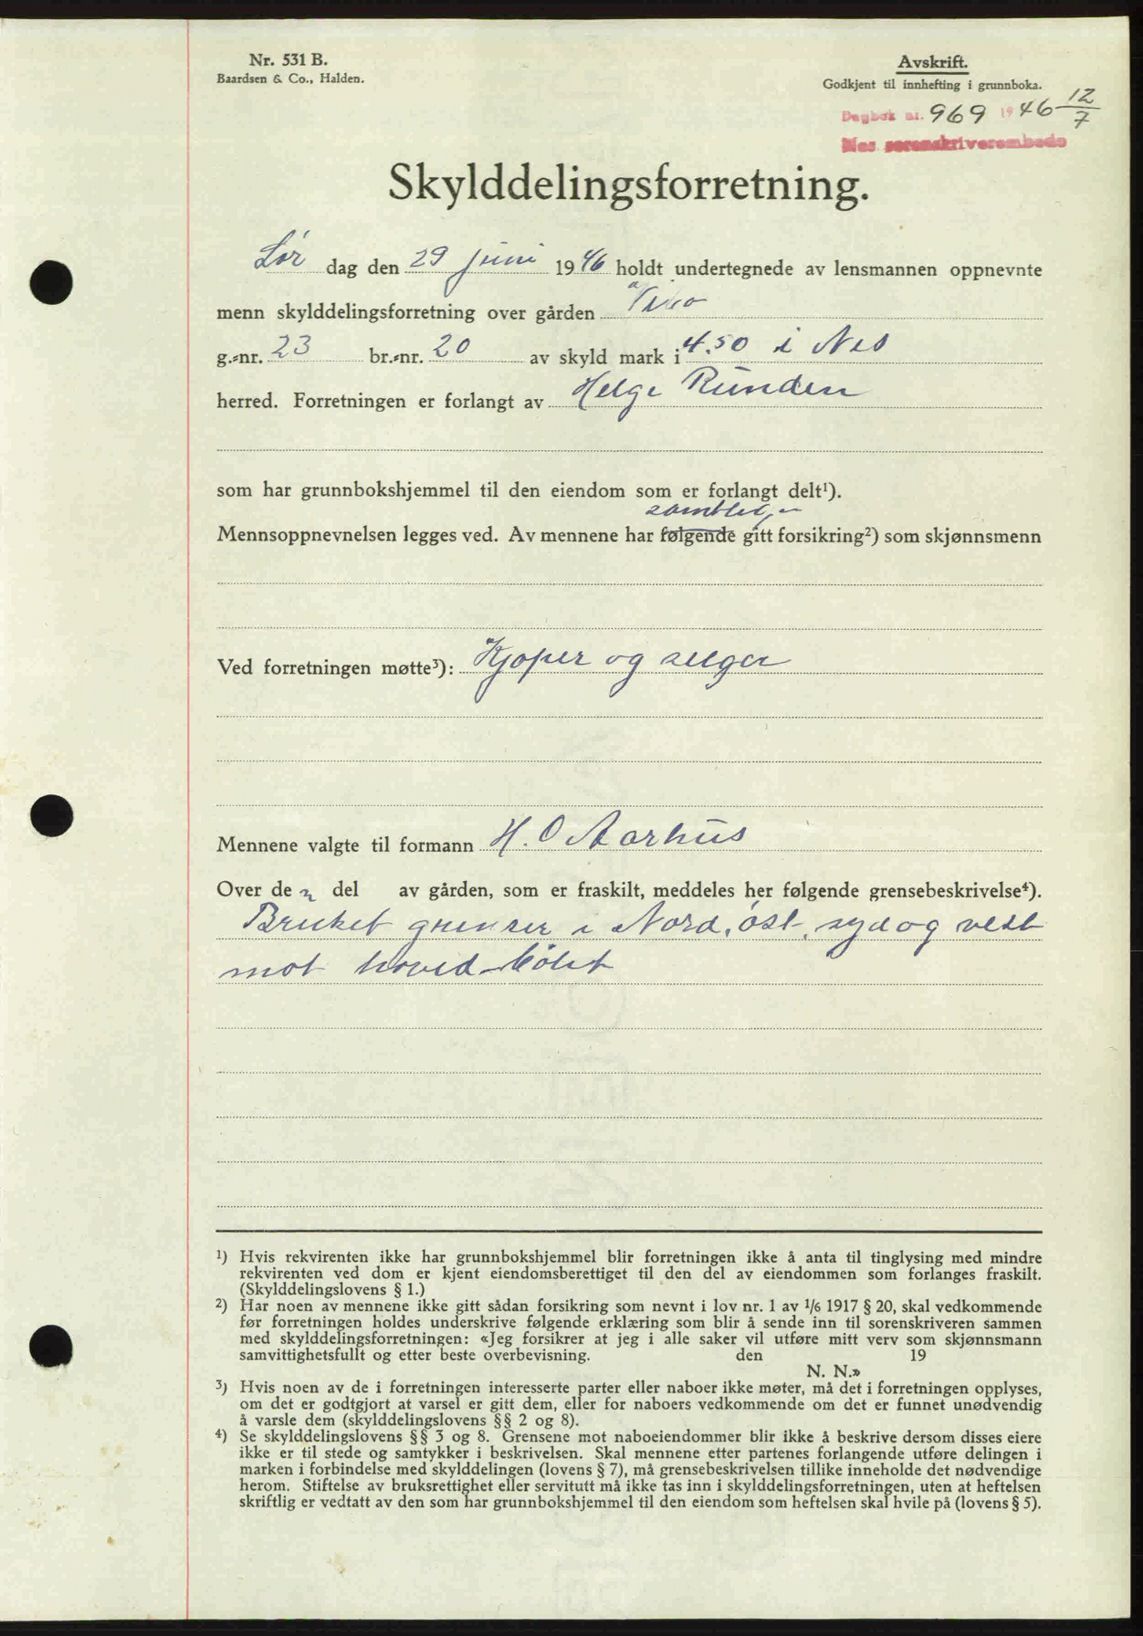 Nr. 531 B.
Baardsen & Co., Halden.
Avskrift.
Godkjent til innhefting i grunnboka.
Dagbok nr. 969 1946 12/7
Nes sorenskriverembede
Skylddelingsforretning.
Lør dag den 29 juni 1946 holdt undertegnede av lensmannen oppnevnte
menn skylddelingsforretning over gården
g.-nr. 23 br.-nr. 20 av skyld mark i 4.50 i Nes
herred. Forretningen er forlangt av Helge Runden
som har grunnbokshjemmel til den eiendom som er forlangt delt¹).
samtlige
Mennsoppnevnelsen legges ved. Av mennene har følgende gitt forsikring²) som skjønnsmenn
Ved forretningen møtte³): Kjøper og selger
Mennene valgte til formann H. O Aarhus
Over de n del av gården, som er fraskilt, meddeles her følgende grensebeskrivelse⁴).
Bruket grenser i Nord, øst, syd og vest
mot hoved-bølet
¹) Hvis rekvirenten ikke har grunnbokshjemmel blir forretningen ikke å anta til tinglysing med mindre
rekvirenten ved dom er kjent eiendomsberettiget til den del av eiendommen som forlanges fraskilt.
(Skylddelingslovens § 1.)
²) Har noen av mennene ikke gitt sådan forsikring som nevnt i lov nr. 1 av 1/6 1917 § 20, skal vedkommende
før forretningen holdes underskrive følgende erklæring som blir å sende inn til sorenskriveren sammen
med skylddelingsforretningen: «Jeg forsikrer at jeg i alle saker vil utføre mitt verv som skjønnsmann
samvittighetsfullt og etter beste overbevisning. den 19
N. N.»
³) Hvis noen av de i forretningen interesserte parter eller naboer ikke møter, må det i forretningen opplyses,
om det er godtgjort at varsel er gitt dem, eller for naboers vedkommende om det er funnet unødvendig
å varsle dem (skylddelingslovens §§ 2 og 8).
⁴) Se skylddelingslovens §§ 3 og 8. Grensene mot naboeiendommer blir ikke å beskrive dersom disses eiere
ikke er til stede og samtykker i beskrivelsen. Skal mennene etter partenes forlangende utføre delingen i
marken i forbindelse med skylddelingen (lovens § 7), må grensebeskrivelsen tillike inneholde det nødvendige
herom. Stiftelse av bruksrettighet eller servitutt må ikke tas inn i skylddelingsforretningen, uten at heftelsen
skriftlig er vedtatt av den som har grunnbokshjemmel til den eiendom som heftelsen skal hvile på (lovens § 5).